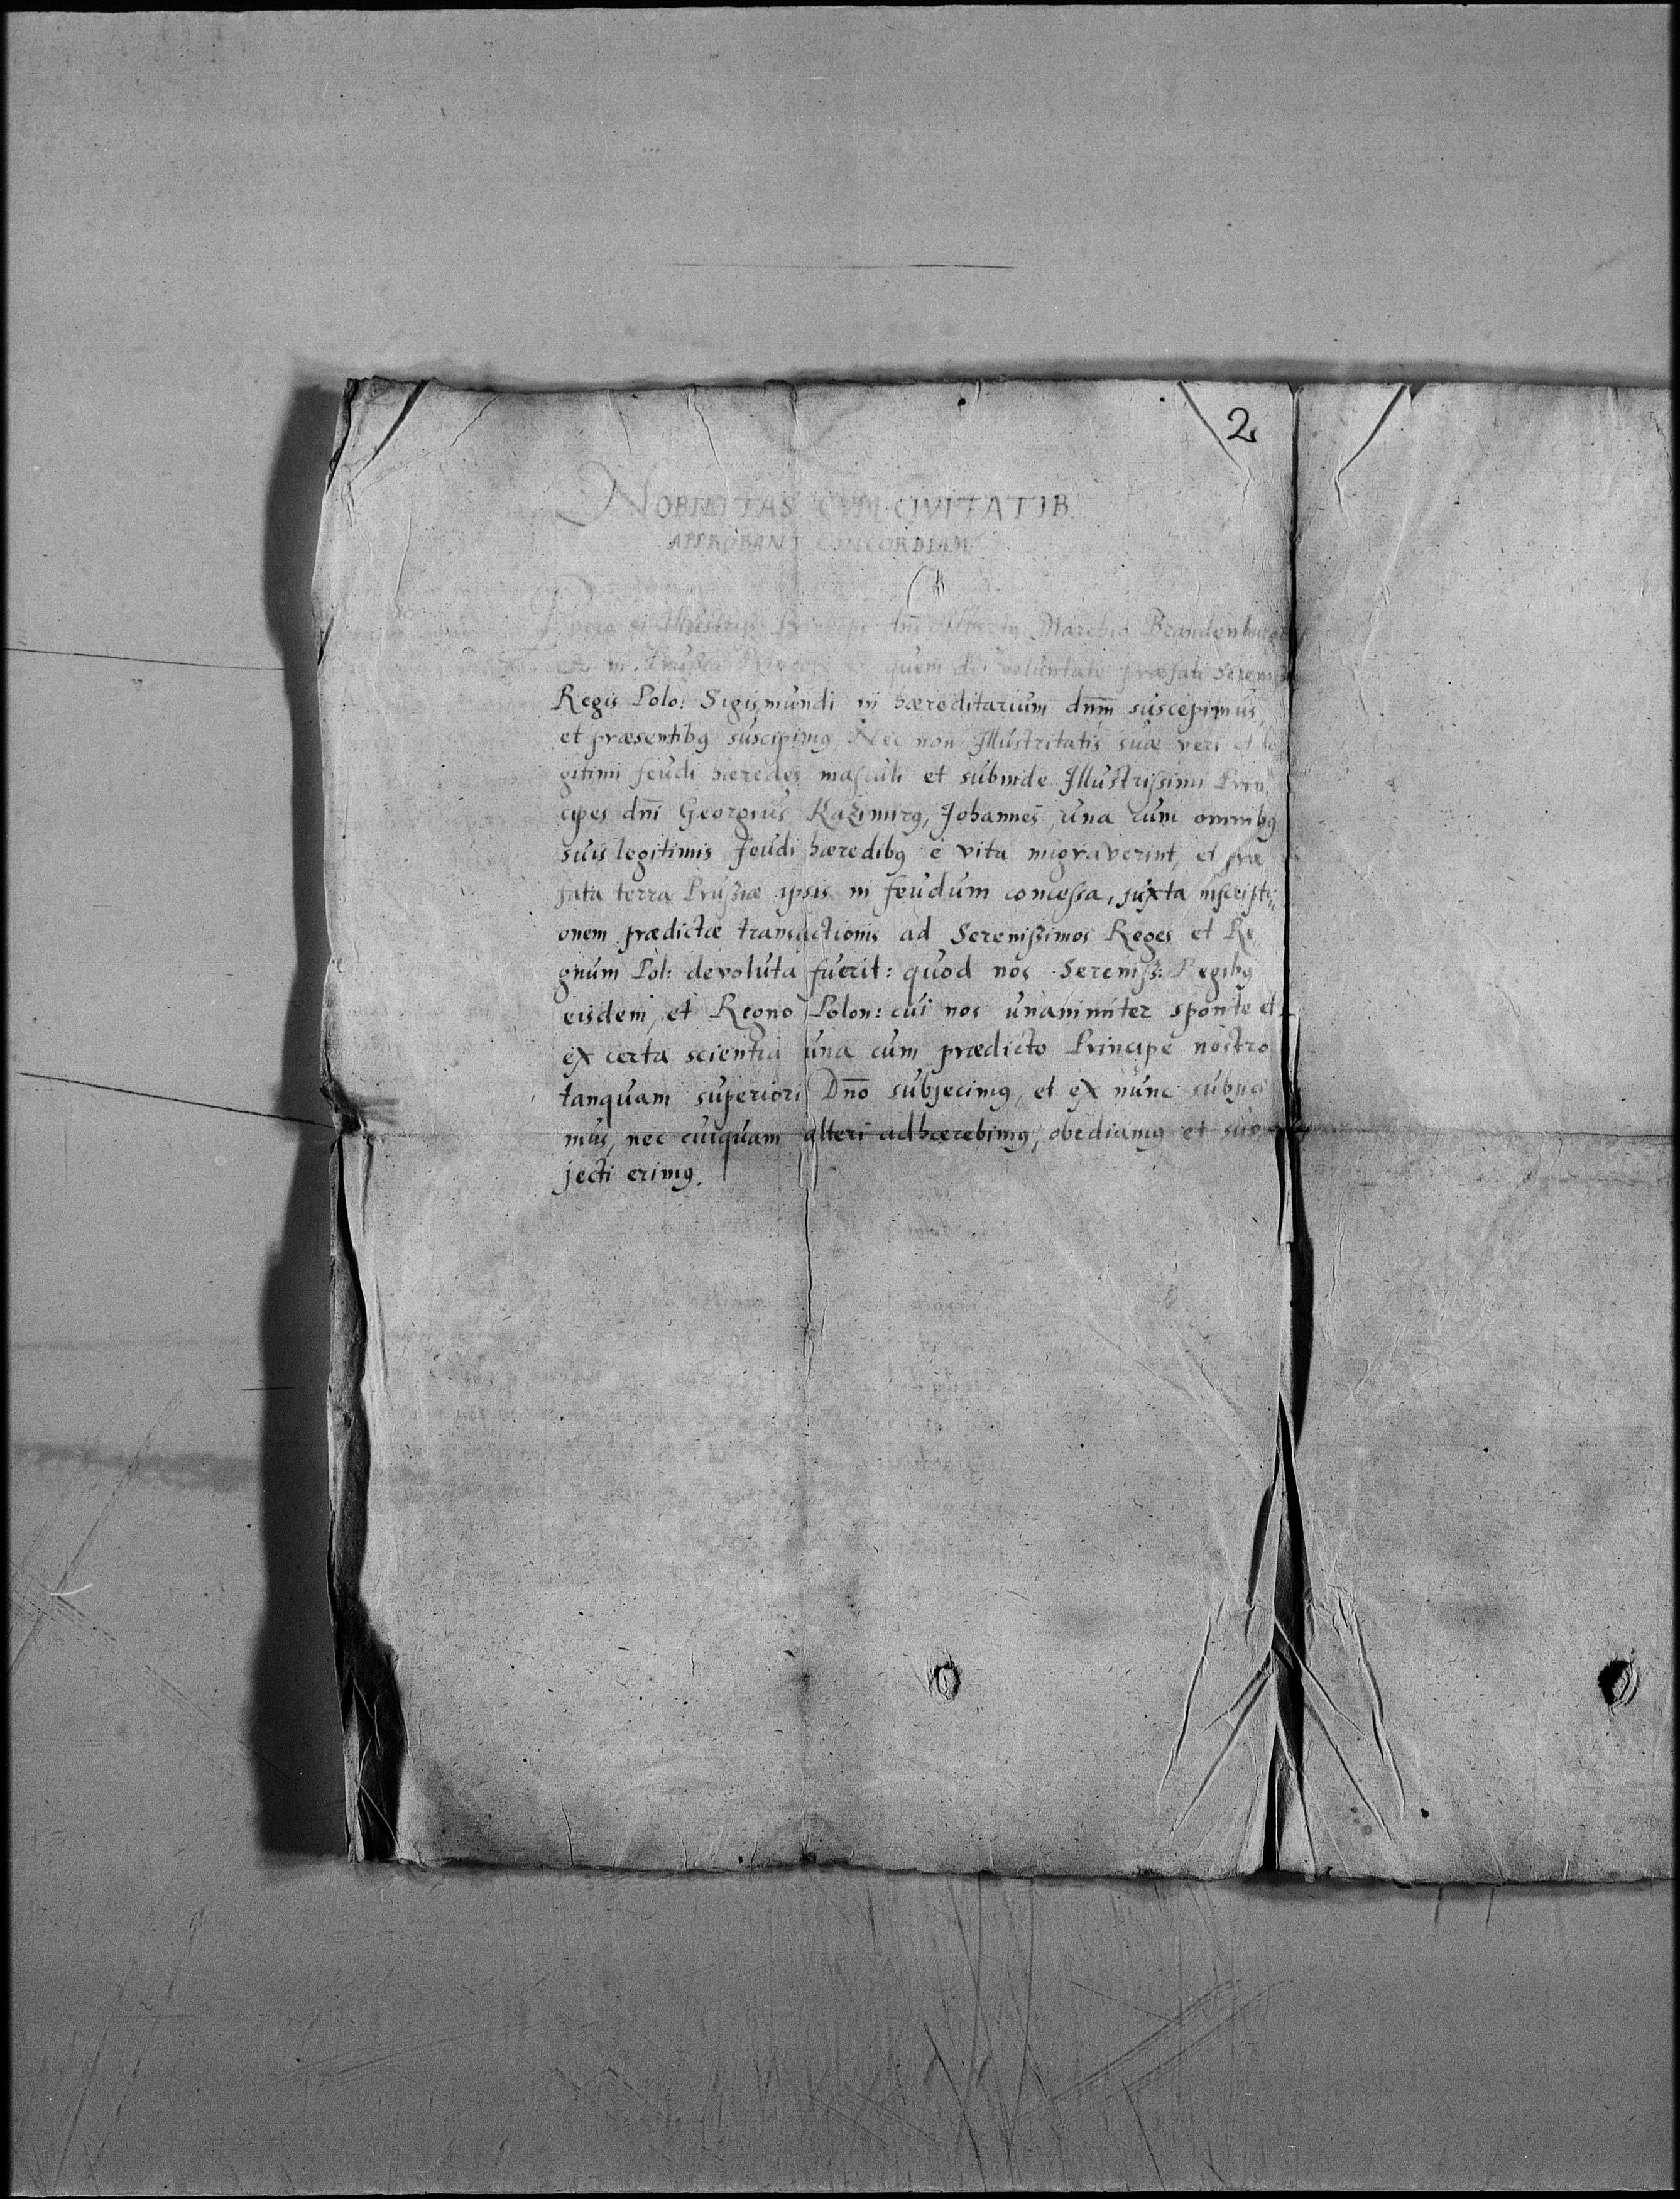 2
NOBILITAS CVM CIVITATIB.
APPROBANT CONCORDIAM
vero si Illustriss: Princeps dn̄s Albertꝰ Marchio Brandenburgen
in Prussia quem dei voluntate præfati Sereniss
Regis Polo: Sigismundi in hæreditarium dn̄m suscepimus,
et præsentibꝰ suscipimꝰ, Nec non Illustritatis suæ veri et le
gitimi feudi hæredes masculi et subinde Illustrissimi Prin,
cipes dn̄i Georgius Kazimirꝰ, Johannes, una cum omnibꝰ
suis legitimis feudi hæredibꝰ è vita migraverint, et præ
fata terra Prussiæ ipsis in feudum concessa, juxta inscripti,,
onem prædictæ transactionis ad Serenissimos Reges et Re
gnum Pol: devoluta fuerit: quod nos Sereniss: Regibꝰ
eisdem, et Regno Polon: cui nos unanimiter sponte et
ex certa scientia una cum prædicto Principe nostro
tanquam superiori Dn̄o subjecimꝰ, et ex nunc subjici
mus, nec cuiquam alteri adhærebimꝰ, obediamꝰ et sub
jecti erimꝰ.